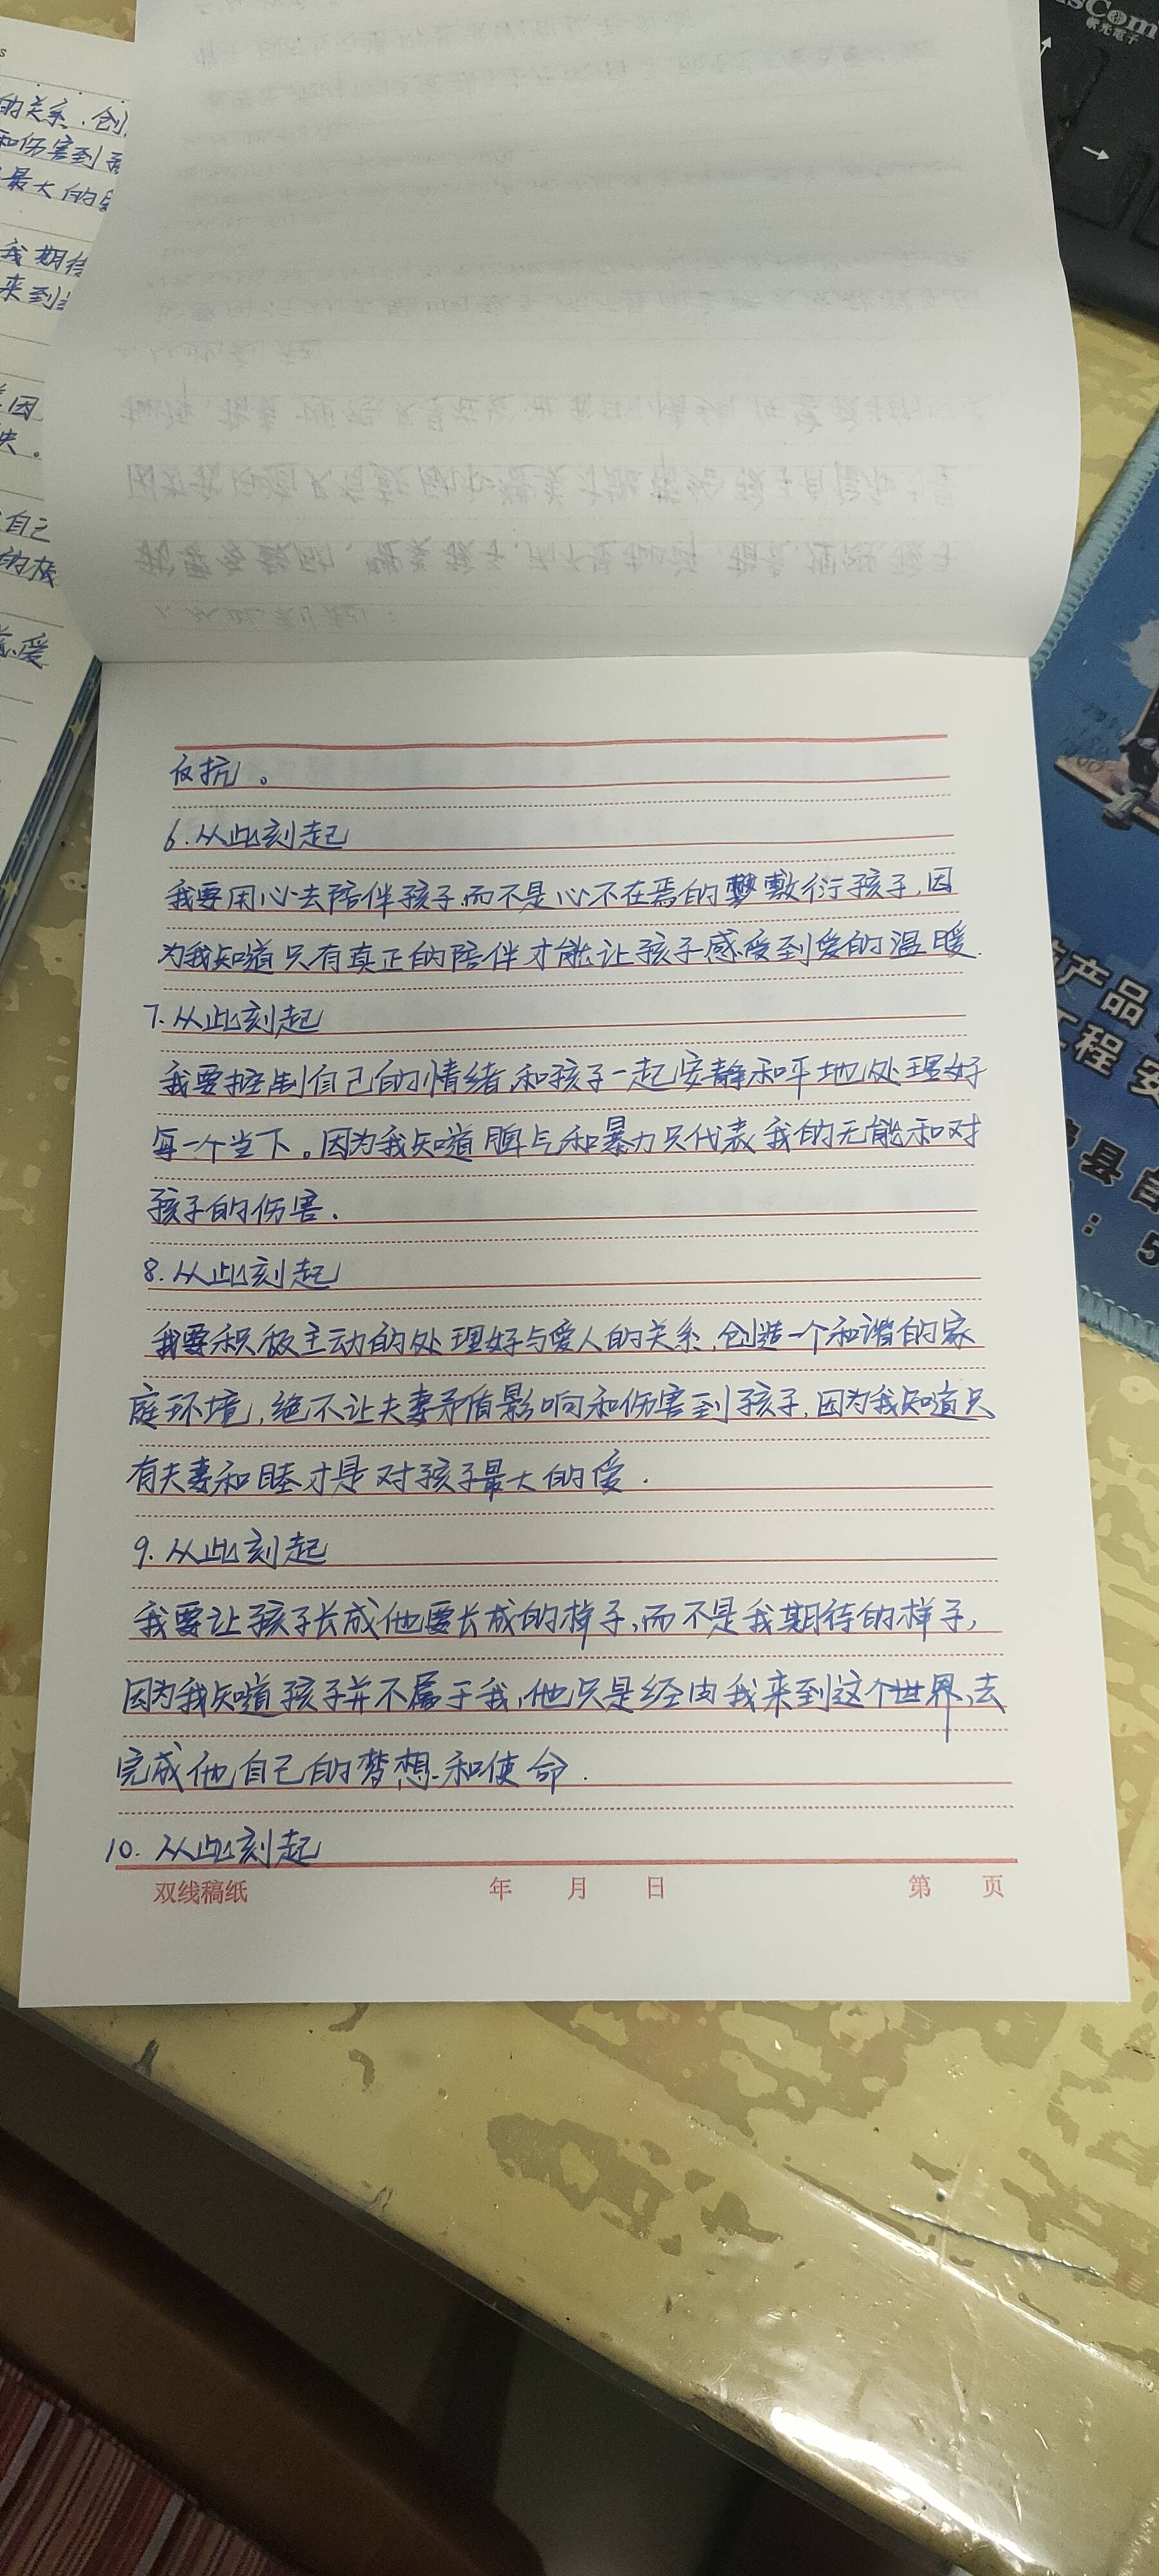 的关系.创
和伤害到
最大的
我期待
来到
因
自己
的
爱
isCom
帐光電子
→
反抗。
6.从此刻起
我要用心去陪伴孩子,而不是心不在焉的敷衍孩子,因
为我知道只有真正的陪伴才能让孩子感受到爱的温暖.
7.从此刻起
我要控制自己的情绪,和孩子一起安静和平地处理好
每一个当下。因为我知道脾气和暴力只代表我的无能和对
孩子的伤害.
8.从此刻起
我要积极主动的处理好与爱人的关系,创造一个和谐的家
庭环境,绝不让夫妻矛盾影响和伤害到孩子,因为我知道只
有夫妻和睦才是对孩子最大的爱.
9.从此刻起
我要让孩子长成他要长成的样子,而不是我期待的样子,
因为我知道孩子并不属于我,他只是经由我来到这个世界,去
完成他自己的梦想和使命.
10.从此刻起
双线稿纸 年 月 日 第 页
产品
工程 安
县自
: 5